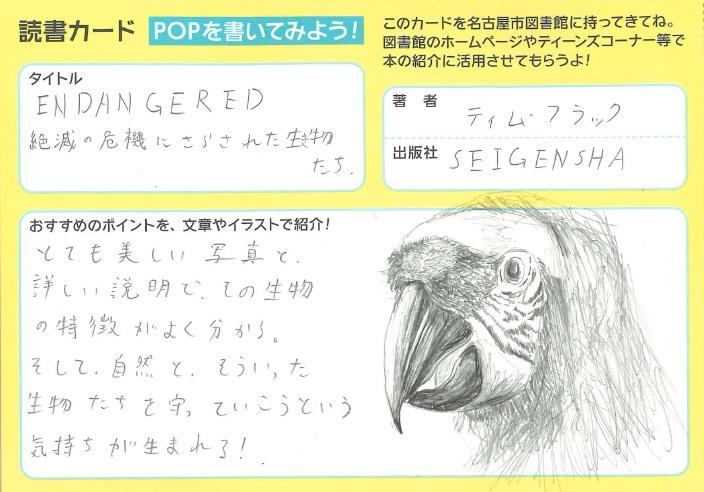 読書カード POPを書いてみよう！
このカードを名古屋市図書館に持ってきてね。
図書館のホームページやティーンズコーナー等で
本の紹介に活用させてもらうよ！
タイトル
ENDANGERED
絶滅の危機にさらされた生物
たち.
著者 ティム・フラック
出版社 SEIGENSHA
おすすめのポイントを、文章やイラストで紹介！
とても美しい写真と、
詳しい説明で、その生物
の特徴がよく分かる。
そして、自然と、そういった
生物たちを守っていこうという
気持ちが生まれる！